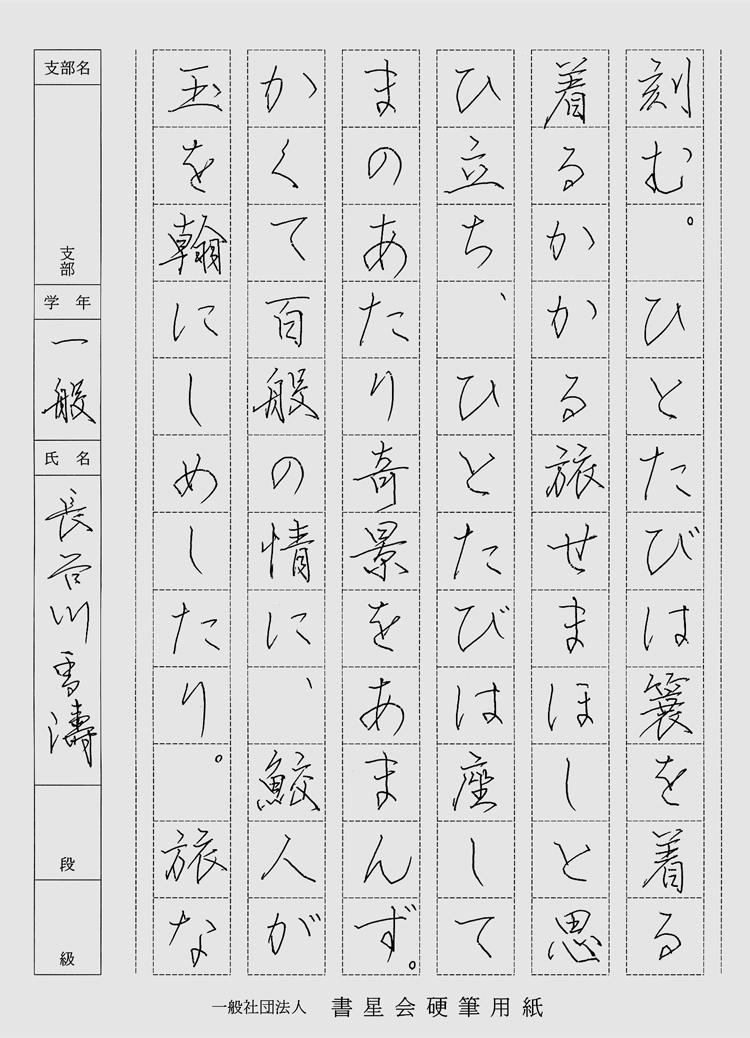 刻む。ひとたびは簑を着る
着るかかる旅せまほしと思
ひ立ち、ひとたびは座して
まのあたり奇景をあまんず。
かくて百般の情に、鮫人が
玉を翰にしめしたり。旅な
支部名
支部
学年
一般
氏名
長谷川雪濤
段
級
一般社団法人 書星会硬筆用紙